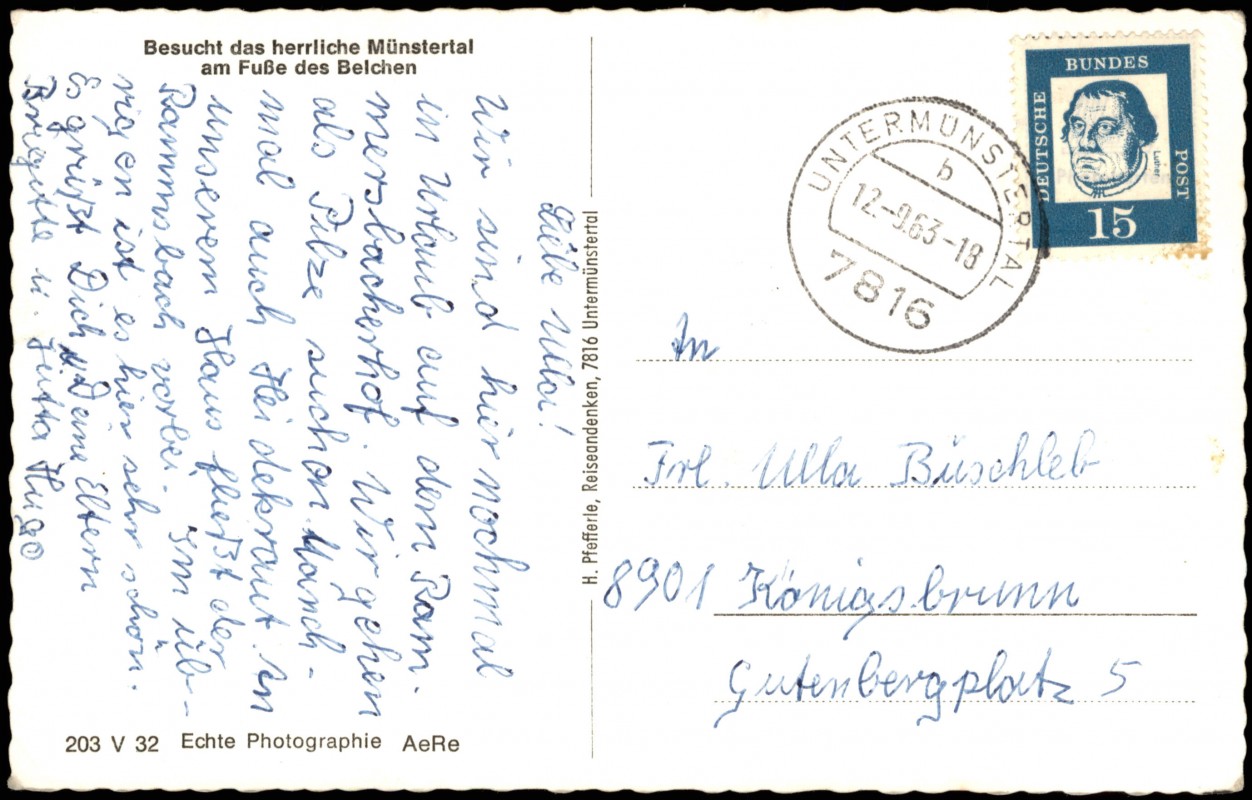 Besucht das herrliche Münstertal
am Fuße des Belchen
Liebe Ulla!
Wir sind hier nochmal
in Urlaub auf dem Ram-
mersbacherhof. Wir gehen
als Pilze suchen. Manch-
mal auch Heidekraut. An
unserem Haus fließt der
Rammsbach vorbei. Im üb-
rigen ist es hier sehr schön.
Es grüßt Dich u. Deine Eltern
Brigitte u. Jutta Hugo
203 V 32 Echte Photographie AeRe
H. Pfefferle, Reiseandenken, 7816 Untermünstertal
UNTERMÜNSTERTAL
b
12.-9.63-18
7816
DEUTSCHE BUNDES POST
Luther
15
An
Frl. Ulla Büschleb
8901 Königsbrunn
Gutenbergplatz 5